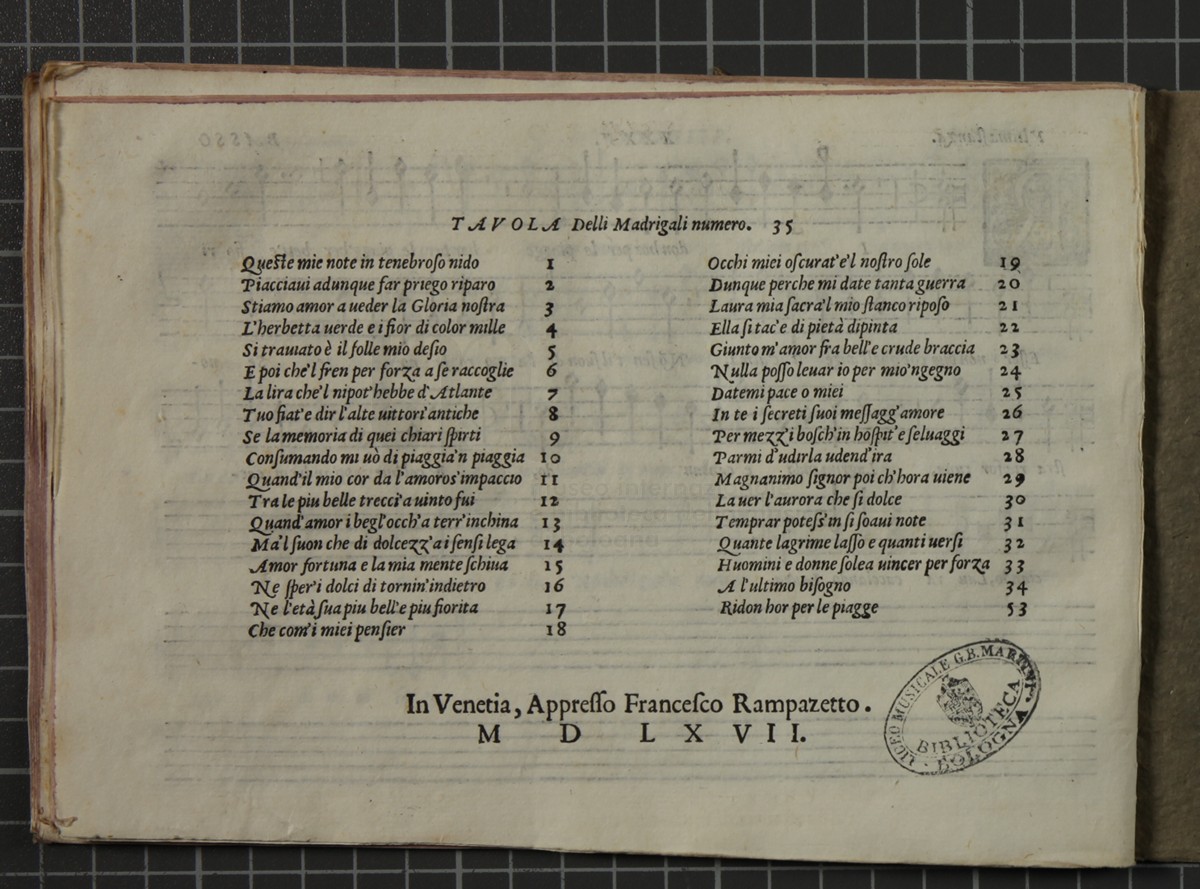 TAVOLA Delli Madrigali numero. 35
Queſte mie note in tenebroſo nido 1
Piacciaui adunque far priego riparo 2
Stiamo amor a ueder la Gloria noſtra 3
L'herbetta uerde e i fior di color mille 4
Si trauiato è il folle mio deſio 5
E poi che'l fren per forza a ſe raccoglie 6
La lira che'l nipot'hebbe d'Atlante 7
Tuo fiat'e dir l'alte uittori'antiche 8
Se la memoria di quei chiari ſpirti 9
Conſumando mi uò di piaggia'n piaggia 10
Quand'il mio cor da l'amoros'impaccio 11
Tra le piu belle trecci'a uinto fui 12
Quand'amor i begl'occh'a terr'inchina 13
Ma'l ſuon che di dolcezz'a i ſenſi lega 14
Amor fortuna e la mia mente ſchiua 15
Ne ſper'i dolci di tornin'indietro 16
Ne l'età ſua piu bell'e piu fiorita 17
Che com'i miei penſier 18
Occhi miei oſcurat'e'l noſtro ſole 19
Dunque perche mi date tanta guerra 20
Laura mia ſacra'l mio ſtanco ripoſo 21
Ella ſi tac'e di pietà dipinta 22
Giunto m'amor fra bell'e crude braccia 23
Nulla poſſo leuar io per mio'ngegno 24
Datemi pace o miei 25
In te i ſecreti ſuoi meſſagg'amore 26
Per mezz'i boſch'in hoſpit'e ſeluaggi 27
Parmi d'udirla udend'ira 28
Magnanimo ſignor poi ch'hora uiene 29
La uer l'aurora che ſi dolce 30
Temprar poteſs'in ſi ſoaui note 31
Quante lagrime laſſo e quanti uerſi 32
Huomini e donne ſolea uincer per forza 33
A l'ultimo biſogno 34
Ridon hor per le piagge 53
In Venetia, Appreſſo Franceſco Rampazetto.
M D L X V I I.
LICEO MUSICALE G.B. MARTINI
BIBLIOTECA
BOLOGNA